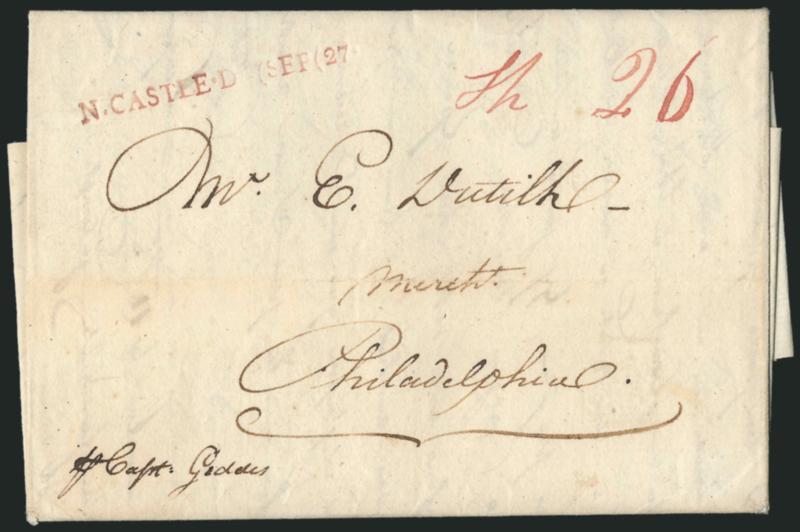 N·CASTLE·D (SEP(27·
Sh 26
Mr. E. Dutilh
Mercht.
Philadelphia.
Capt: Geddes